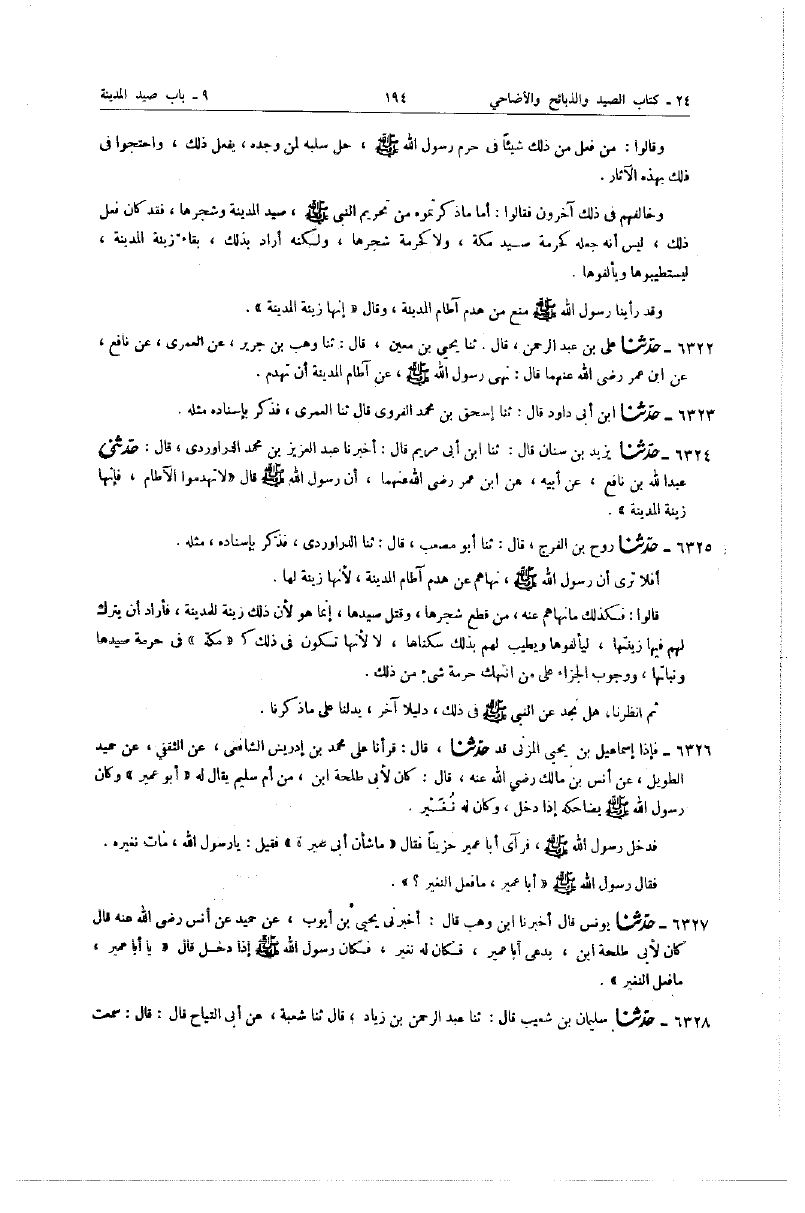 ٢٤ ـ كتاب الصيد والذبائح والأضاحي ١٩٤ ٩ ـ باب صيد المدينة
وقالوا : من فعل من ذلك شيئاً فى حرم رسول الله ﷺ ، حل سلبه لمن وجده ، يفعل ذلك ، واحتجوا فى
ذلك بهذه الآثار .
وخالفهم فى ذلك آخرون فقالوا : أما ماذكرتموه من تحريم النبي ﷺ ، صيد المدينة وشجرها ، فقد كان فعل
ذلك ، ليس أنه جعله كحرمة صيد مكة ، ولا كحرمة شجرها ، ولكنه أراد بذلك ، بقاء زينة المدينة ،
ليستطيبوها ويألفوها .
وقد رأينا رسول الله ﷺ منع من هدم آطام المدينة ، وقال « إنها زينة المدينة » .
٦٣٢٢ ـ حدثنا على بن عبد الرحمن ، قال . ثنا يحيى بن معين ، قال : ثنا وهب بن جرير ، عن العمرى ، عن نافع ،
عن ابن عمر رضى الله عنهما قال : نهى رسول الله ﷺ ، عن آطام المدينة أن تهدم .
٦٣٢٣ ـ حدثنا ابن أبى داود قال : ثنا إسحق بن محمد الفروى قال ثنا العمرى ، فذكر بإسناده مثله .
٦٣٢٤ ـ حدثنا يزيد بن سنان قال : ثنا ابن أبى مريم قال : أخبرنا عبد العزيز بن محمد الدراوردى ، قال : حدثنى
عبدالله بن نافع ، عن أبيه ، عن ابن عمر رضى الله عنهما ، أن رسول الله ﷺ قال «لاتهدموا الآطام ، فإنها
زينة المدينة » .
٦٣٢٥ ـ حدثنا روح بن الفرج ، قال : ثنا أبو مصعب ، قال : ثنا الدراوردى ، فذكر بإسناده ، مثله .
أفلا ترى أن رسول الله ﷺ ، نهاهم عن هدم آطام المدينة ، لأنها زينة لها .
قالوا : فكذلك مانهاهم عنه ، من قطع شجرها ، وقتل صيدها ، إنما هو لأن ذلك زينة للمدينة ، فأراد أن يترك
لهم فيها زينتها ، ليألفوها ويطيب لهم بذلك سكناها ، لا لأنها تكون فى ذلك كـ « مكة » فى حرمة صيدها
ونباتها ، ووجوب الجزاء على من انتهك حرمة شىء من ذلك .
ثم انظرنا، هل نجد عن النبي ﷺ فى ذلك ، دليلا آخر ، يدلنا على ماذكرنا .
٦٣٢٦ ـ فإذا إسماعيل بن يحيى المزنى قد حدثنا ، قال : قرأنا على محمد بن إدريس الشافعى ، عن الثقفى ، عن حميد
الطويل ، عن أنس بن مالك رضي الله عنه ، قال : كان لأبى طلحة ابن ، من أم سليم يقال له « أبو عمير » وكان
رسول الله ﷺ يضاحكه إذا دخل ، وكان له نُغَيْر .
فدخل رسول الله ﷺ ، فرآى أبا عمير حزيناً فقال « ماشأن أبى عمير ؟ » فقيل : يارسول الله ، مات نغيره .
فقال رسول الله ﷺ « أبا عمير ، مافعل النغير ؟ » .
٦٣٢٧ ـ حدثنا يونس قال أخبرنا ابن وهب قال : أخبرنى يحيى بن أيوب ، عن حميد عن أنس رضى الله عنه قال
كان لأبى طلحة ابن ، يدعى أبا عمير ، فكان له نغير ، فكان رسول الله ﷺ إذا دخل قال « يا أبا عمير ،
مافعل النغير » .
٦٣٢٨ ـ حدثنا سليمان بن شعيب قال : ثنا عبد الرحمن بن زياد ، قال ثنا شعبة ، عن أبى التياح قال : قال : سمعت